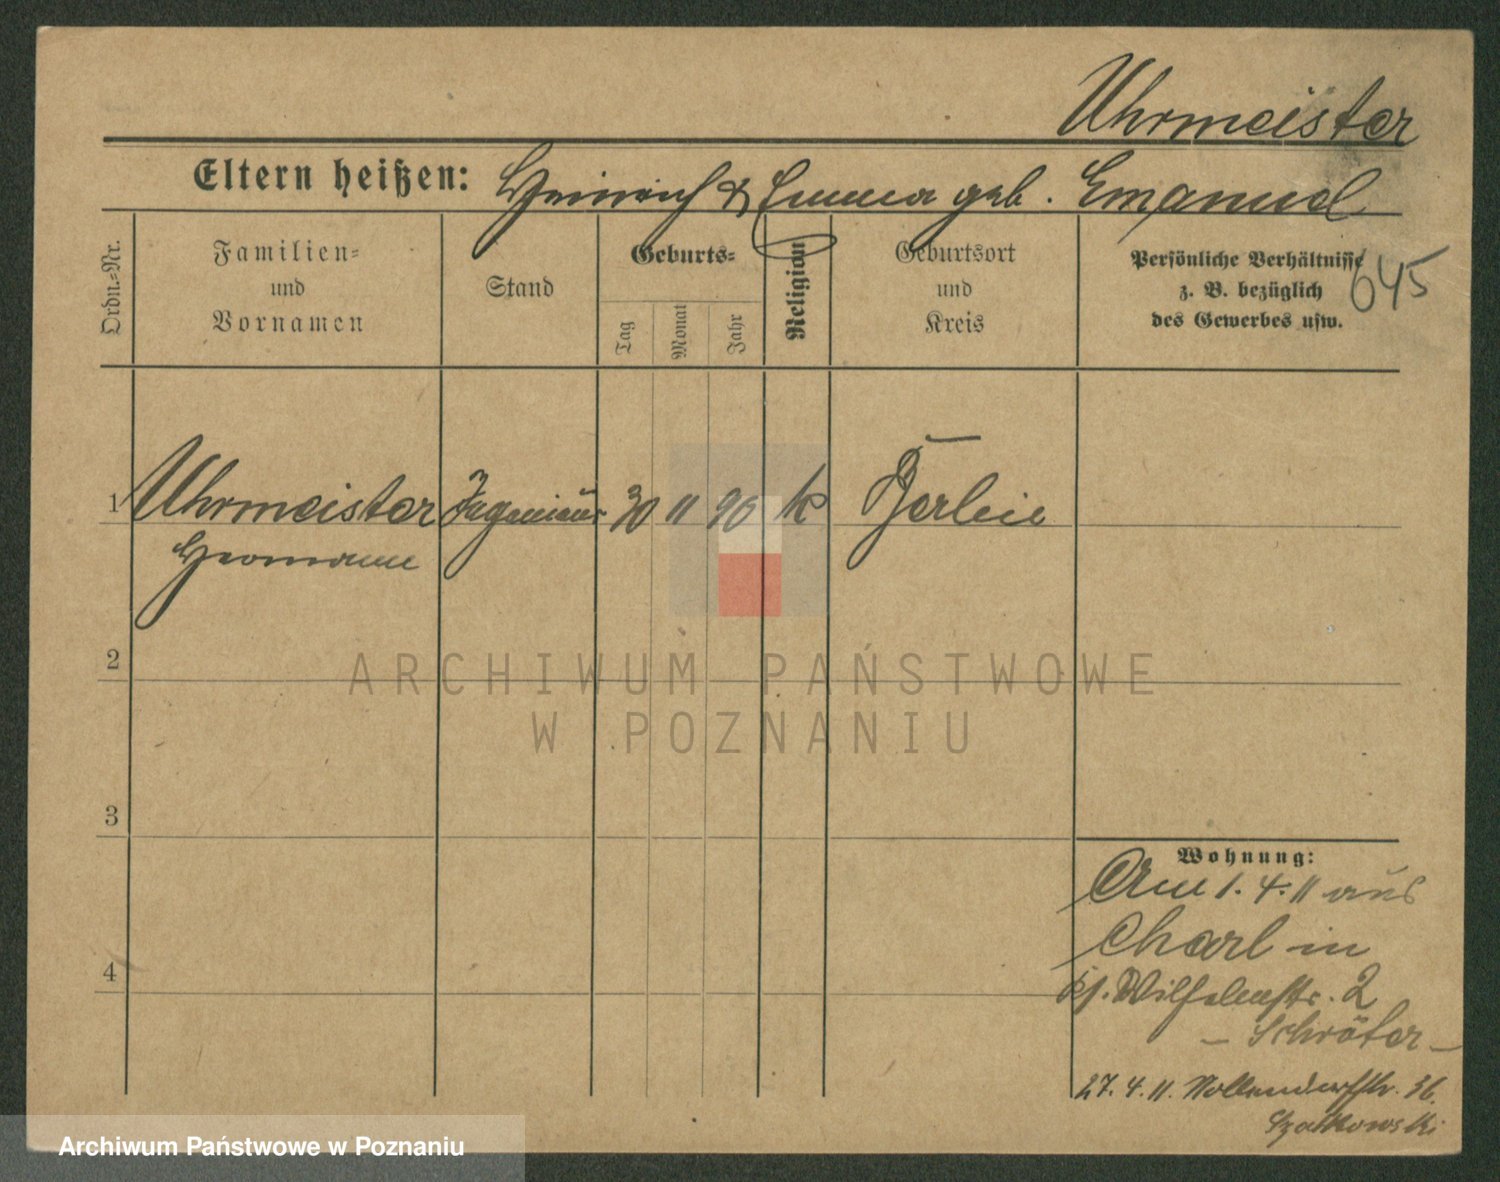 Uhrmeister
Eltern heißen: Heinrich & Emma geb. Emanuel
Ordn.-Nr.
Familien-
und
Vornamen
Stand
Geburts-
Tag
Monat
Jahr
Religion
Geburtsort
und
Kreis
Persönliche Verhältnisse
z. B. bezüglich
des Gewerbes usw.
645
1 Uhrmeister Ingenieur 30 11 90 k Berlin
Hermann
2
3
4
Wohnung:
Am 1. 4. 11 aus
Charl in
Wilhelmstr. 2
– Schröter –
27. 4. 11. Nollendorfstr. 36.
Szatkowski
ARCHIWUM PAŃSTWOWE
W POZNANIU
Archiwum Państwowe w Poznaniu